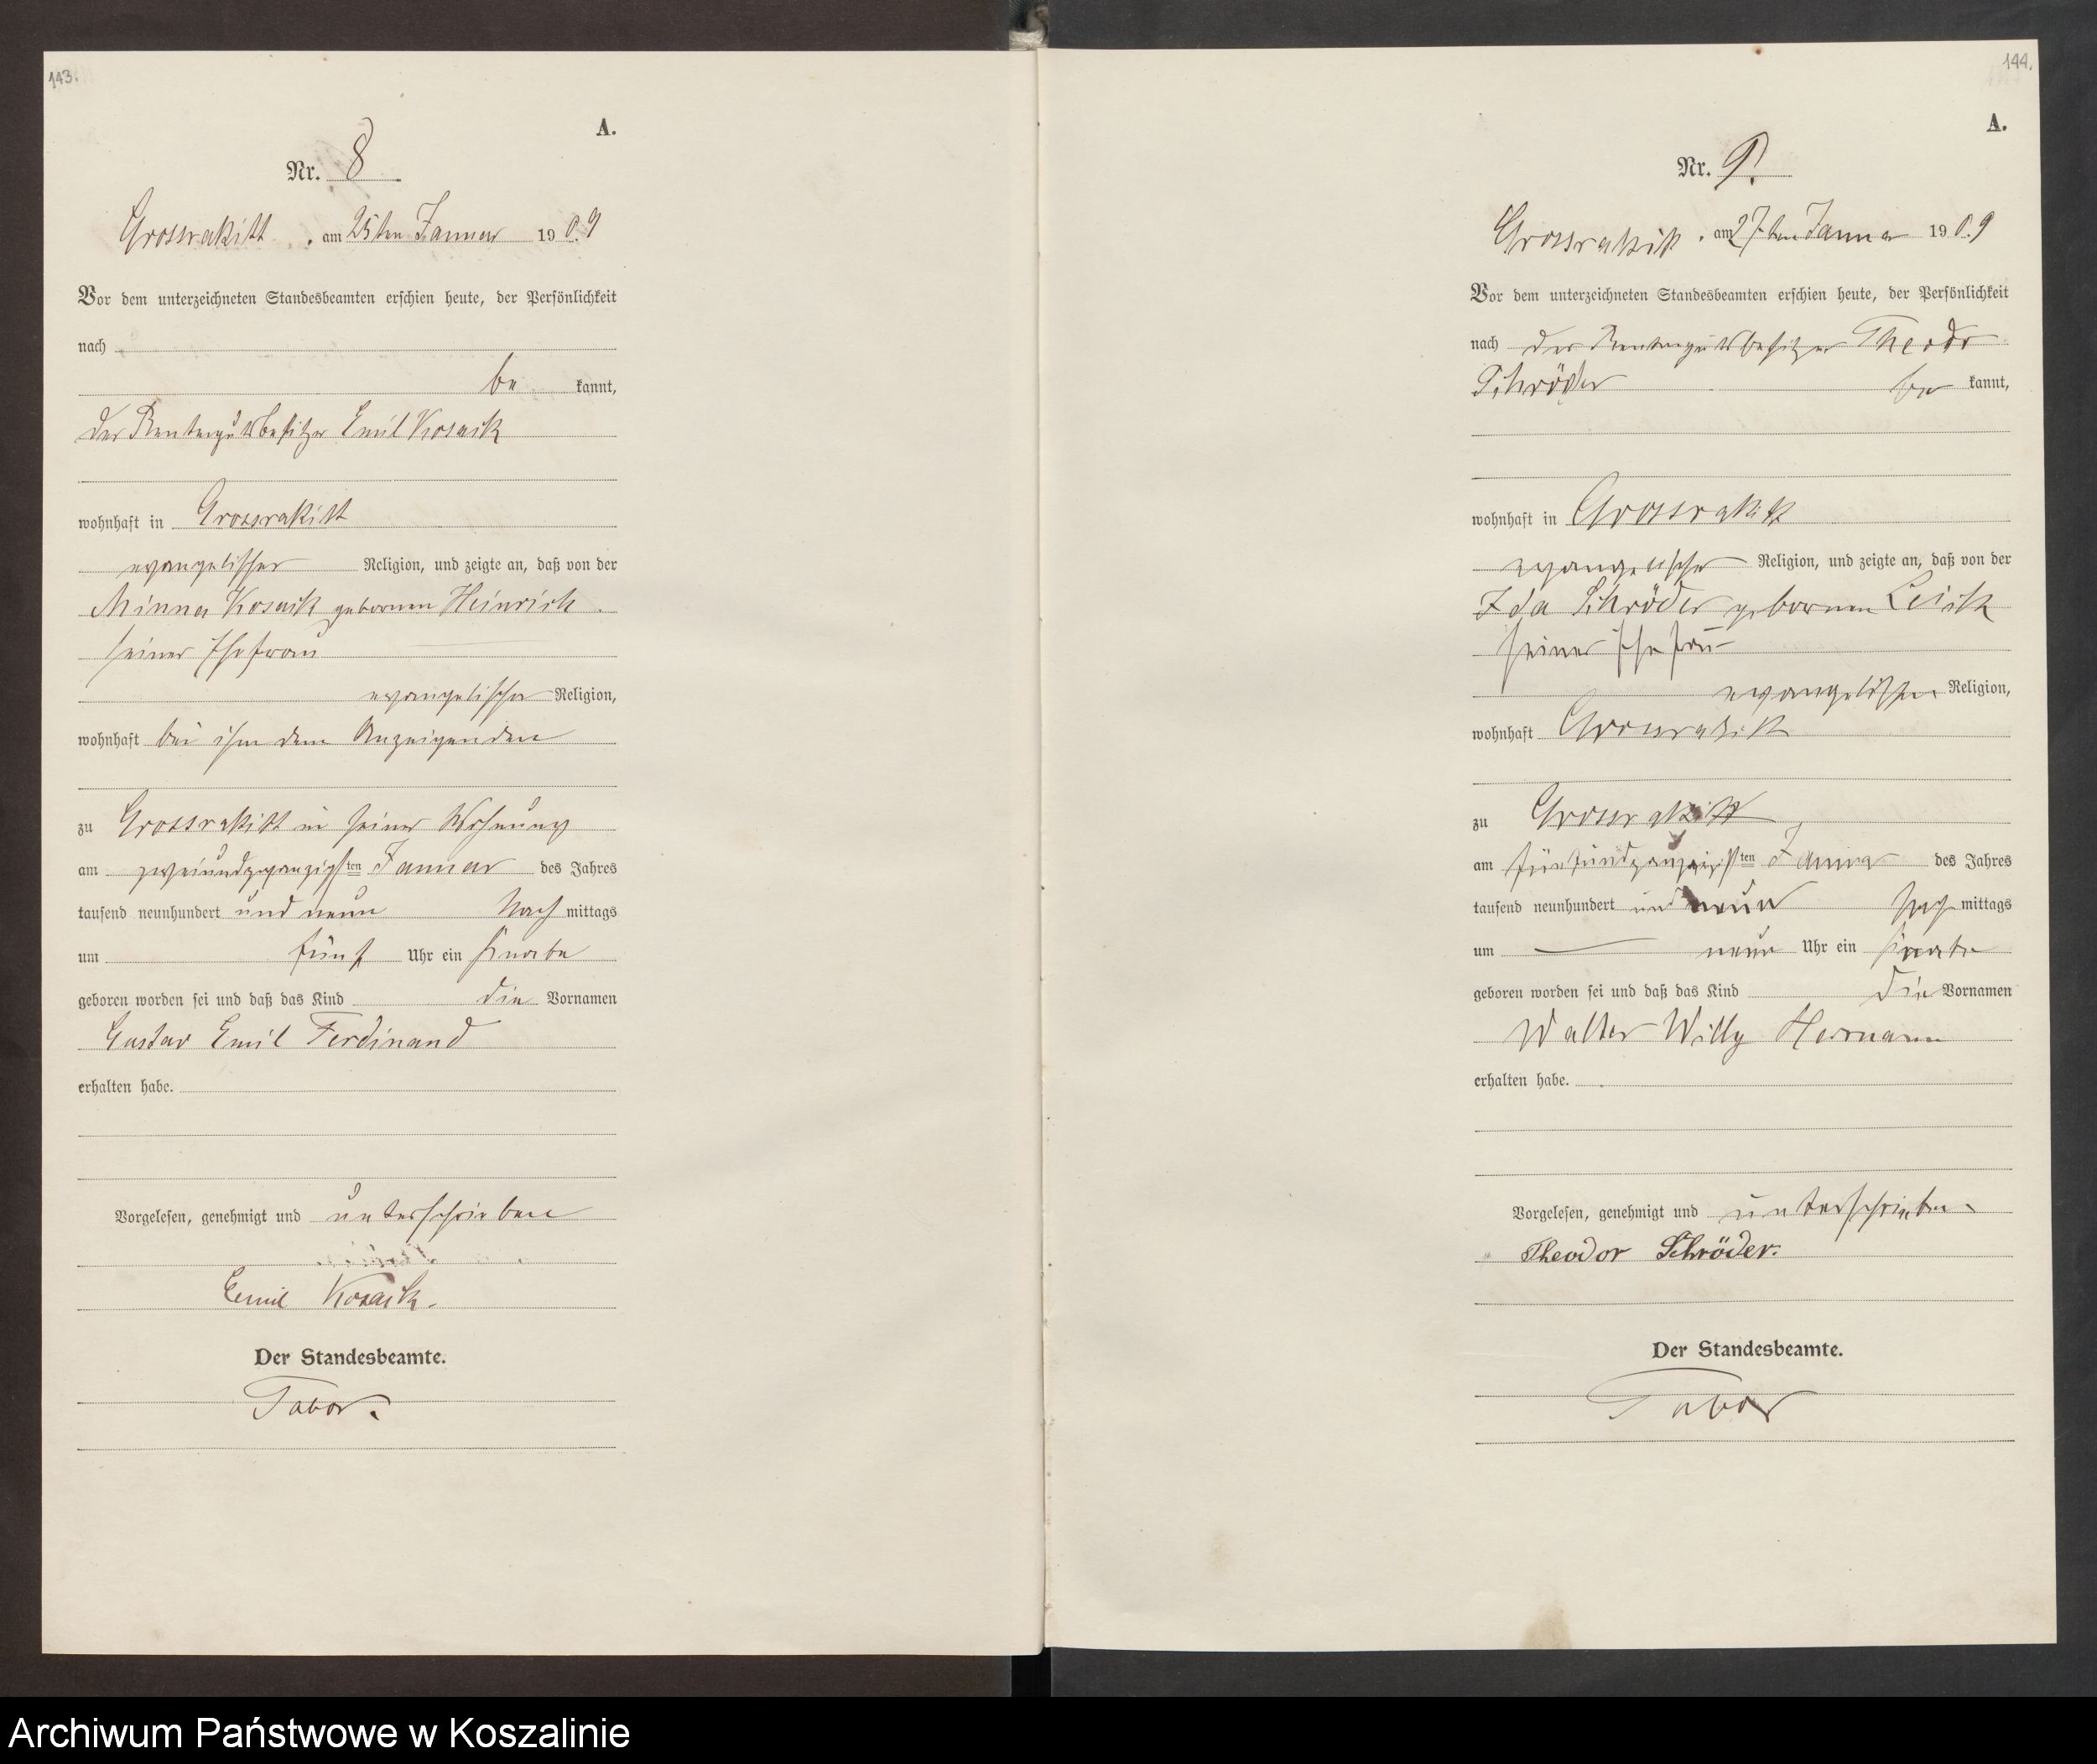 143.
A.
Nr. 8
Grossrakitt, am 25ten Januar 1909
Vor dem unterzeichneten Standesbeamten erschien heute, der Persönlichkeit
nach
be kannt,
der Rentengutsbesitzer Emil Kosack
wohnhaft in Grossrakitt
evangelischer Religion, und zeigte an, daß von der
Minna Kosack geborenen Heinrich
seiner Ehefrau
evangelischer Religion,
wohnhaft bei ihm dem Anzeigenden
zu Grossrakitt in seiner Wohnung
am zweiundzwanzigsten Januar des Jahres
tausend neunhundert und neun Nachmittags
um fünf Uhr ein Knabe
geboren worden sei und daß das Kind die Vornamen
Gustav Emil Ferdinand
erhalten habe.
Vorgelesen, genehmigt und unterschrieben
Emil Kosack.
Der Standesbeamte.
Tabor.
144.
A.
Nr. 9.
Grossrakitt, am 27ten Januar 1909
Vor dem unterzeichneten Standesbeamten erschien heute, der Persönlichkeit
nach der Rentengutsbesitzer Theodor
Schröder be kannt,
wohnhaft in Grossrakitt
evangelischer Religion, und zeigte an, daß von der
Ida Schröder geborenen Leick
seiner Ehefrau
evangelischer Religion,
wohnhaft Grossrakitt
zu Grossrakitt
am fünfundzwanzigsten Januar des Jahres
tausend neunhundert und neun Nachmittags
um neun Uhr ein Knabe
geboren worden sei und daß das Kind die Vornamen
Walter Willy Hermann
erhalten habe.
Vorgelesen, genehmigt und unterschrieben
Theodor Schröder.
Der Standesbeamte.
Tabor
Archiwum Państwowe w Koszalinie